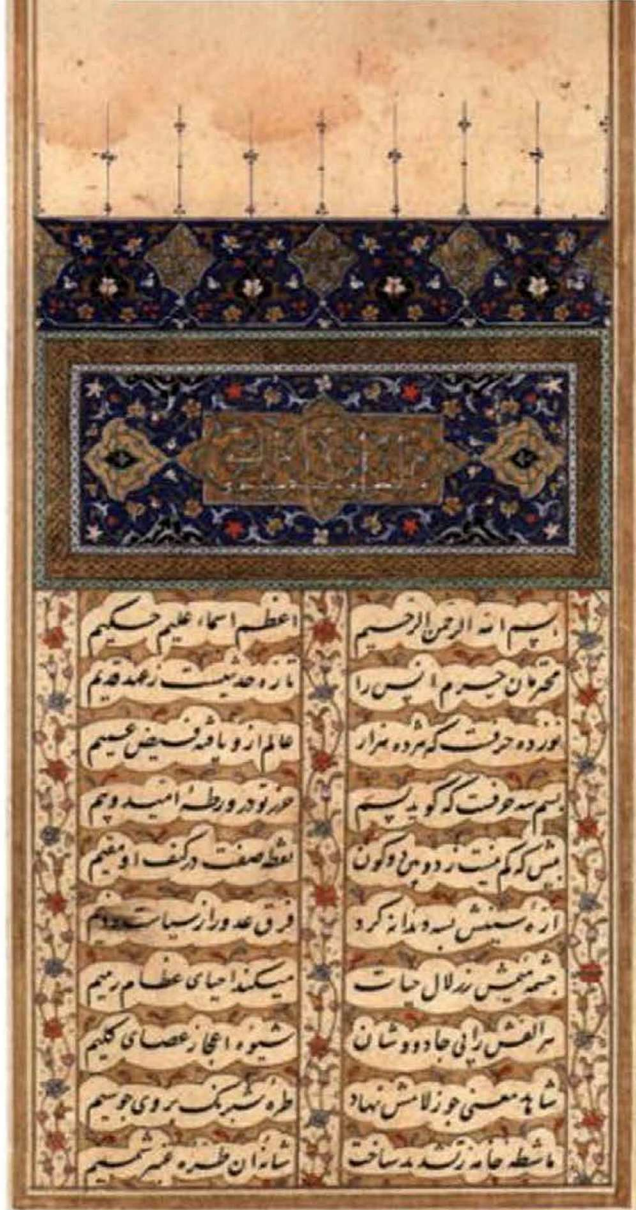 بسم الله الرحمن الرحیم اعظم اسماء علیم حکیم
محرمان حرم انس را تازه حدیثیست ز عهد قدیم
نوزده حرفست که هژده هزار عالم ازو یافته فیض عمیم
بسم سه حرفست که گوید بسم حرز تو در ورطهٔ امید و بیم
بیش که کم نیست ز دو کون نقطه صفت در کنف او مقیم
ارهٔ سینش بسه دندانه کرد فرق عدو را ز سیاست دو نیم
چشمه میمش ز زلال حیات میکند احیای عظام رمیم
هر الفش را پی جادووشان شیوه اعجاز عصای کلیم
شاهد معنی چو ز لامش نهاد طره شبرنگ بروی چو سیم
ماشطه خامه ز تشدید ساخت شانهٔ آن طره عنبر شمیم